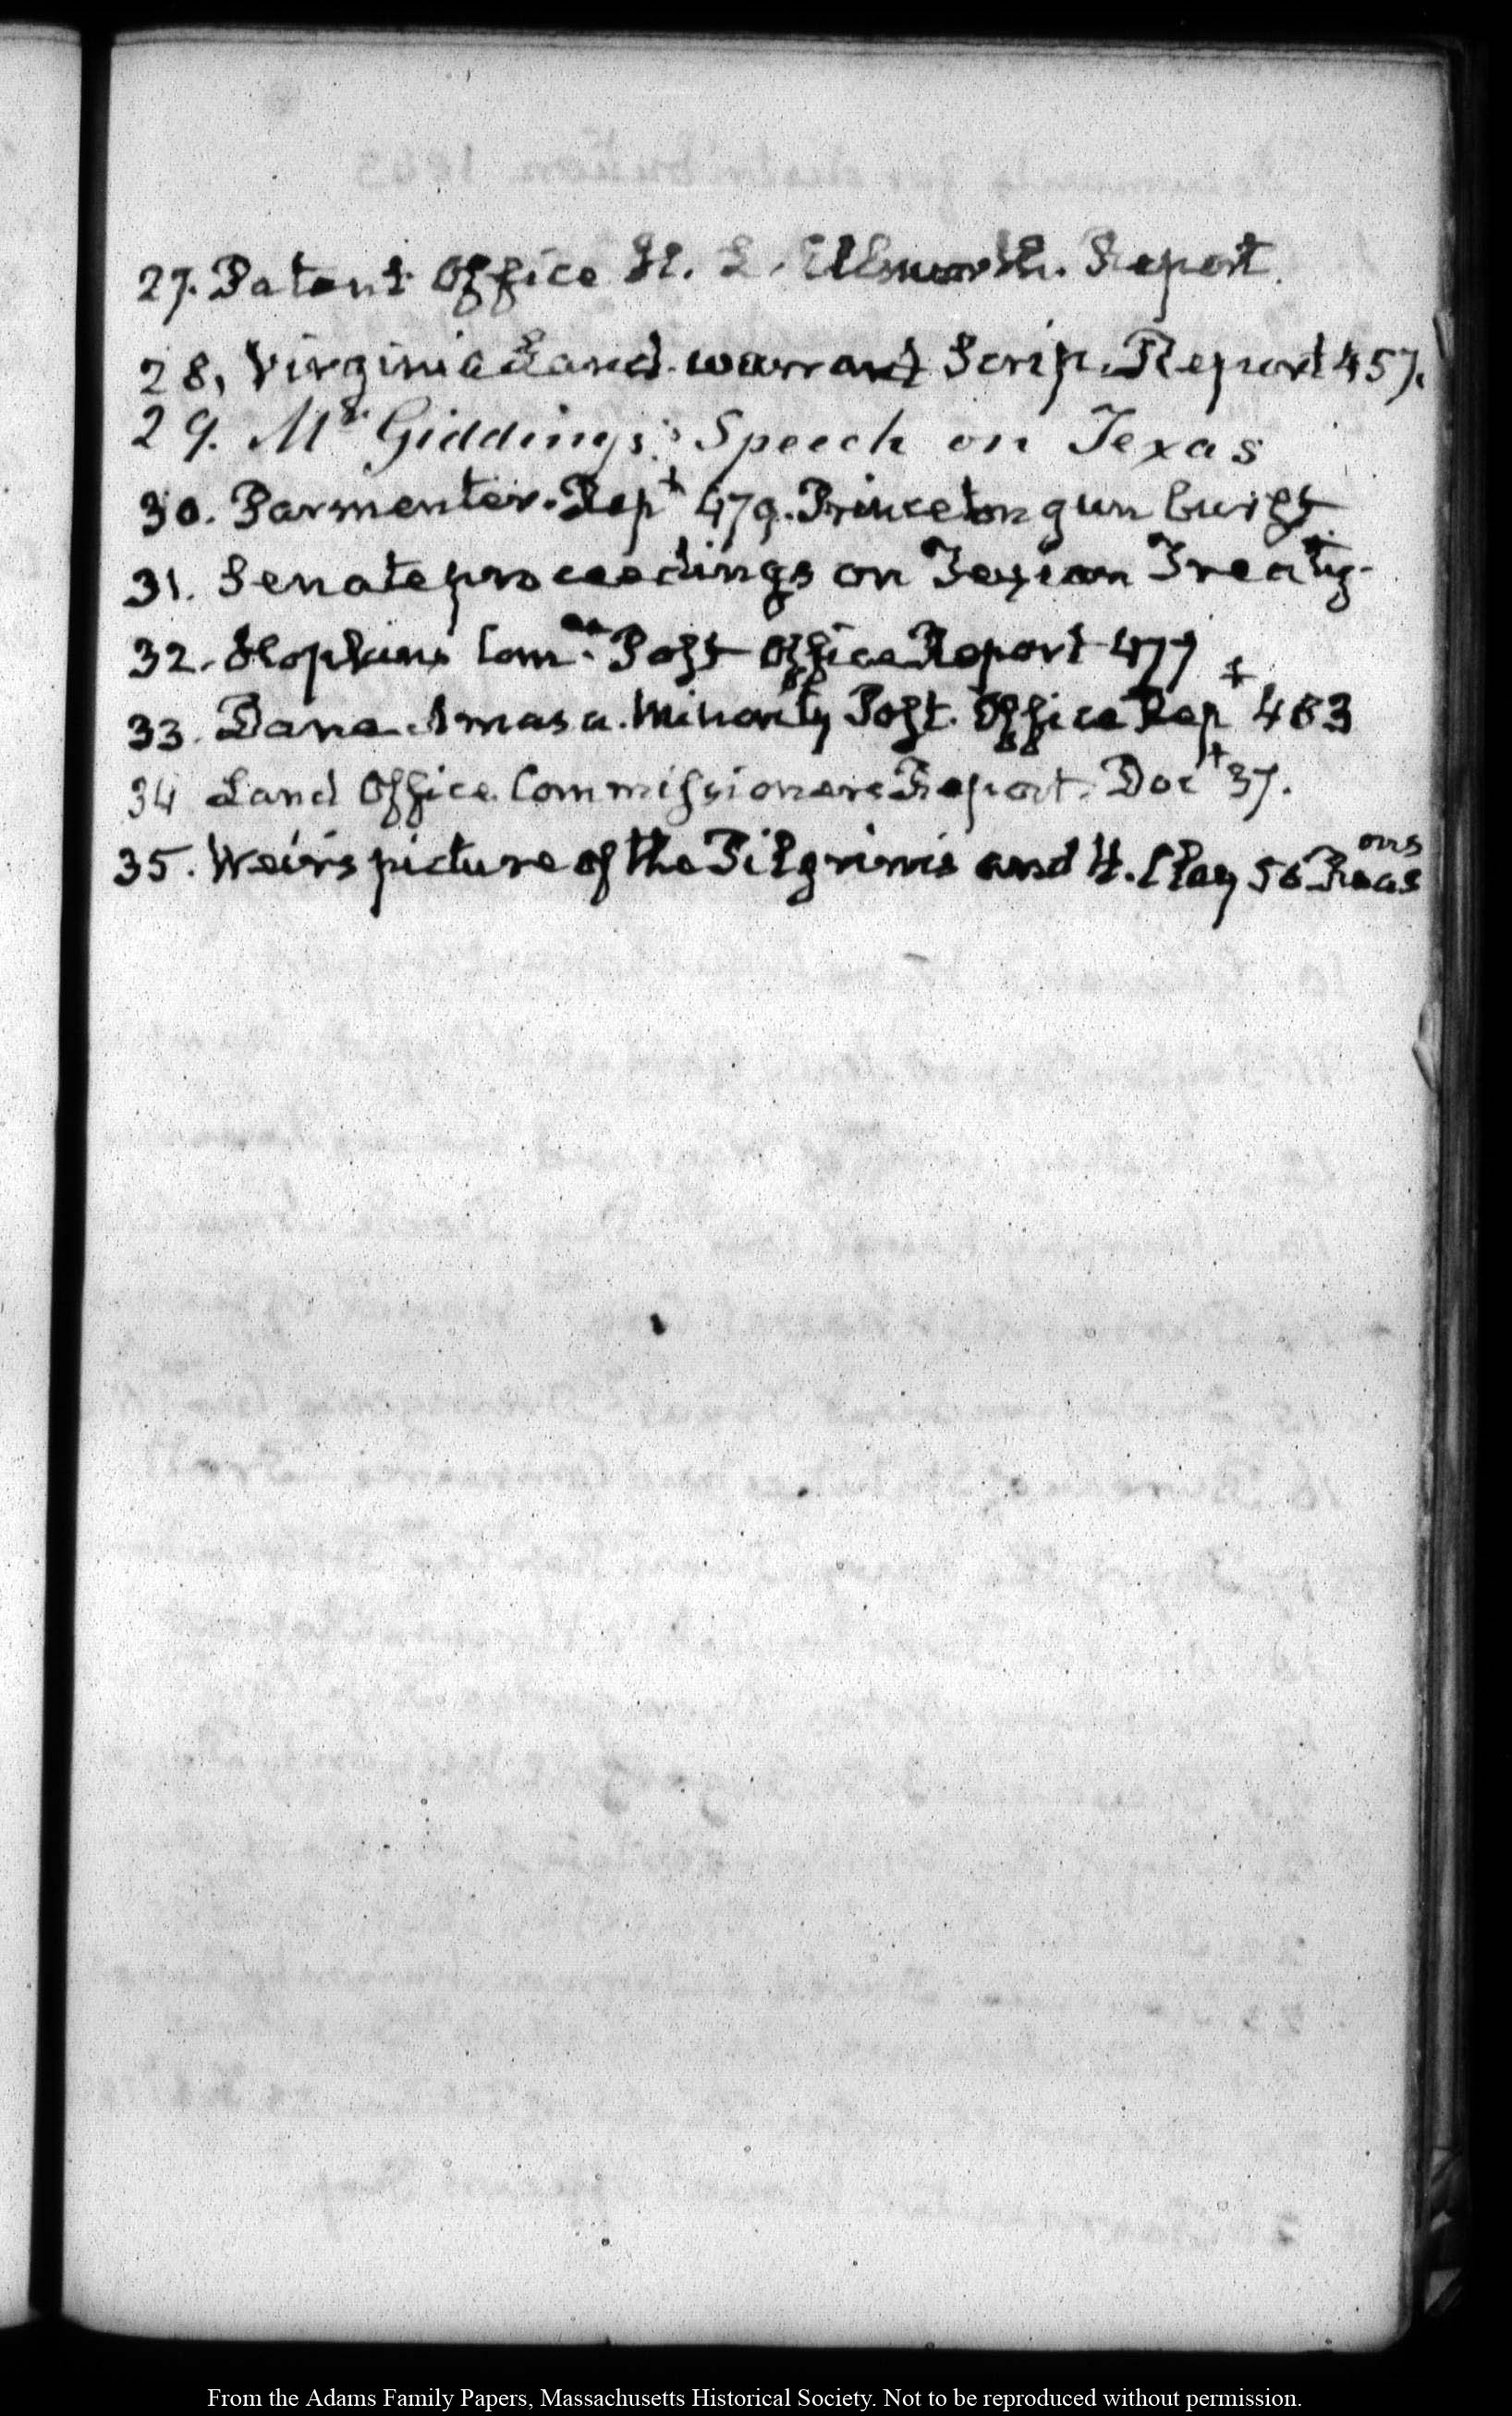 27. Patent Office H. L. Ellsworth. Report.
28. Virginia Land. warrant Scrip. Report 457.
29. Mr. Giddings's Speech on Texas
30. Parmenter. Rept 479. Princeton gun burst
31. Senate proceedings on Texian Treaty.
32. Hopkins Com.ee Post Office Report 477
33. Dana Amasa. Minority Post. Office Rept 483
34 Land Office Commissioners Report. Doct 37.
35. Weir's picture of the Pilgrims and H. Clay 56
From the Adams Family Papers, Massachusetts Historical Society. Not to be reproduced without permission.